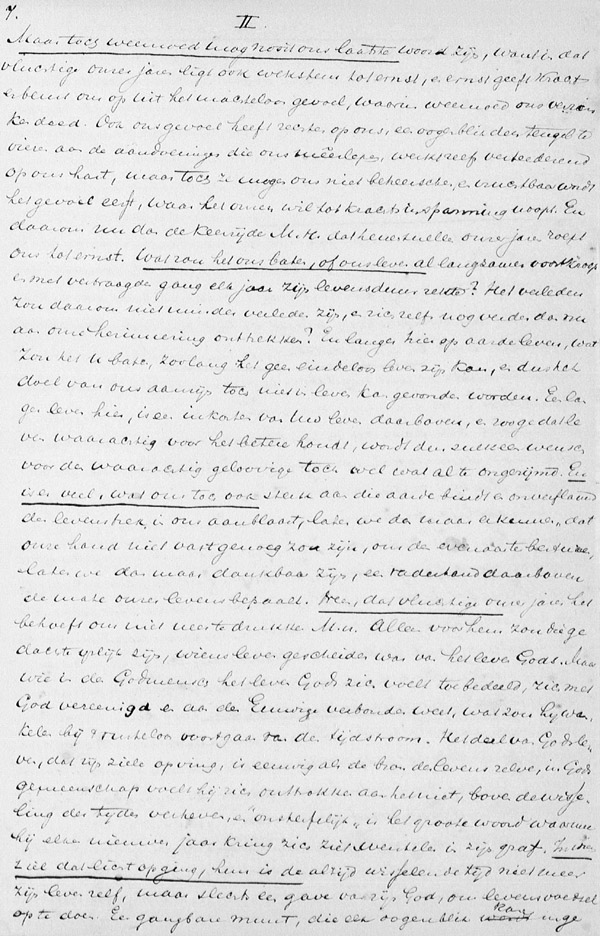 7.
II
Maar toch weemoed mag nooit ons laatste woord zijn, want in dat
vluchtige onzer jaren ligt ook wekstem tot ernst, en ernst geeft kracht
en beurt ons op uit het machteloos gevoel, waarin weemoed ons verzin
ken deed. Ook ons gevoel heeft rechten op ons, een oogenblik den teugel te
vieren aan de aandoeningen die ons werkt zelf verteederend
op ons hart, maar toch ze mogen ons niet beheerschen, en vruchtbaar wordt
het gevoel eerst, waar het onzen wil tot krachtsinspanning noopt. En
daarom nu dan de keerzijde M. H. dat heensnellen onzer jaren roept
ons tot ernst. Wat zou het ons baten, of ons leven al langzamer voortkroop
en met vertraagden gang elk jaar zijn levensduur rekte? Het verleden
zou daarom niet minder verleden zijn, en zich zelf nog verder dan nu
aan onze herinnering onttrekken? En langer hier op aarde leven, wat
zou het u baten, zoolang het geen eindeloos leven zijn kan, en dus het
doel van ons aanzijn toch niet in leven kan gevonden worden. Een lan
ger leven hier, is een inkorten van Uw leven daarboven, en zoo ge dat le
ven waarachtig voor het betere houdt, wordt dus zulk een wensch
voor den waarachtig geloovige toch wel wat al te ongerijmd. En
is er veel, wat ons toch ook sterk aan die aarde bindt en onverflauwd
den levenstrek in ons aanblaast, laten we dan maar erkennen, dat
onze hand niet vast genoeg zou zijn, om den evenaar te besturen,
laten we dan maar dankbaar zijn, een vaderhand daarboven
de mate onzer levens bepaalt. Neen, dat vluchtige onzer jaren het
behoeft ons niet neer te drukken M. H. Alleen voor hem zou die ge
dachte pijnlijk zijn, wiens leven gescheiden was van het leven Gods. Maar
wie in den Godmensch het leven Gods zich voelt toebedeeld, zich met
God vereenigd en aan den Eeuwige verbonden weet, wat zou hij wan
kelen bij 't rusteloos voortgaan van den tijdstroom. Het deel van Gods le
ven, dat zijn ziele opving, is eeuwig als de bron des levens zelve, in Gods
gemeenschap voelt hij zich onttrokken aan het niet, boven de wisse
ling der tijden verheven en "onsterfelijk" is het groote woord waarmee
hij elken nieuwen jaarkring zich ziet wentelen in zijn graf. In wiens
ziel dat licht opging, hem is de altijd wisselende tijd niet meer
zijn leven zelf, maar slechts een gave van zijn God, om levensvoedsel
op te doen. Een gangbare munt, die elk oogenblik kan inge